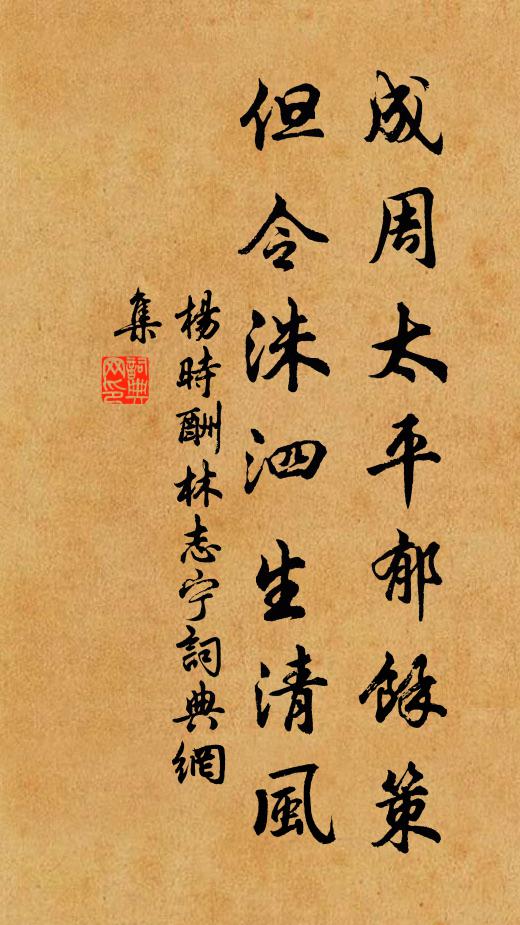 成周太平郁餘策
但令洙泗生清風
楊時酬林志宁詞典網
集
詞典
网印